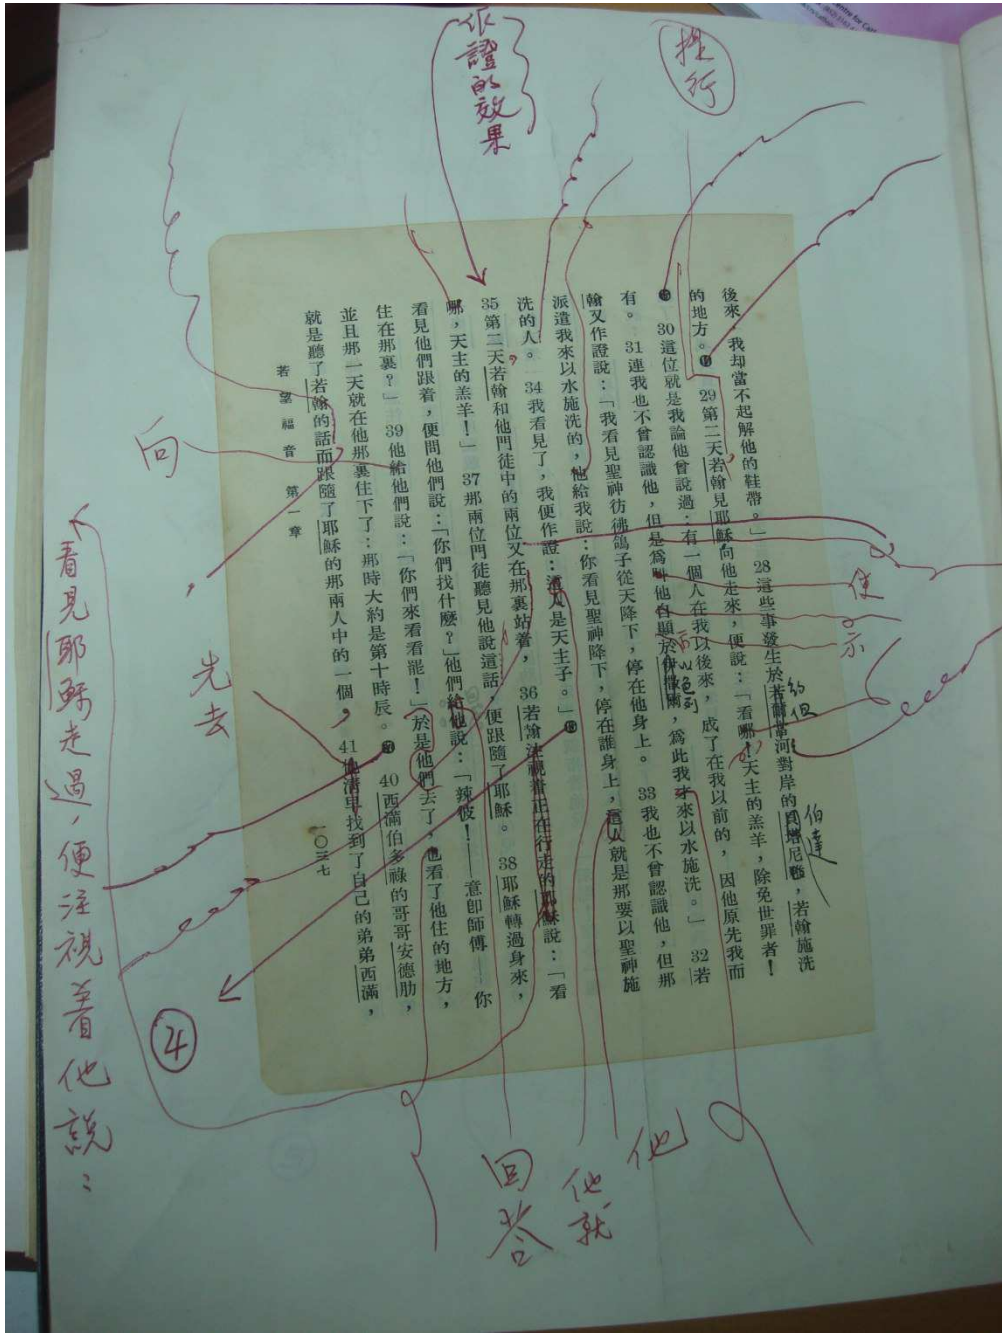 提行
作證的效果
後來，我却當不起解他的鞋帶。」　28這些事發生於若爾當河對岸的貝塔尼雅，若翰施洗
的地方。　29第二天若翰見耶穌向他走來，便說：「看哪！天主的羔羊，除免世罪者！
30這位就是我論他曾說過：有一個人在我以後來，成了在我以前的，因他原先我而
有。　31連我也不曾認識他，但是爲叫他自顯於，爲此我才來以水施洗。」　32若
翰又作證說：「我看見聖神彷彿鴿子從天降下，停在他身上。　33我也不曾認識他，但那
派遣我來以水施洗的，他給我說：你看見聖神降下，停在誰身上，這人就是那要以聖神施
洗的人。　34我看見了，我便作證：這人是天主子。」
35第二天若翰和他門徒中的兩位又在那裏站着，　36若翰注視着正在行走的耶穌說：「看
哪，天主的羔羊！」　37那兩位門徒聽見他說這話，便跟隨了耶穌。　38耶穌轉過身來，
看見他們跟着，便問他們說：「你們找什麼？」他們給他說：「辣彼！——意卽師傅——你
住在那裏？」　39他給他們說：「你們來看看罷！」於是他們去了，也看了他住的地方，
並且那一天就在他那裏住下了：那時大約是第十時辰。　40西滿伯多祿的哥哥安德肋，
就是聽了若翰的話而跟隨了耶穌的那兩人中的一個，　41他清早找到了自己的弟弟西滿，
若望福音　第一章
一〇三七
約但
伯達
以色列
使
示
向
先去
看見耶穌走過，便注視着他說：
④
回答
他就
他